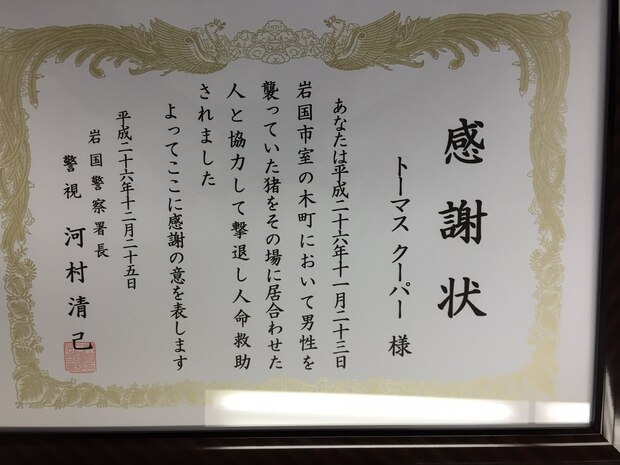 感謝状
トーマス クーパー 様
あなたは平成二十六年十一月二十三日
岩国市室の木町において男性を
襲っていた猪をその場に居合わせた
人と協力して撃退し人命救助
されました
よってここに感謝の意を表します
平成二十六年十二月二十五日
岩国警察署長
警視 河村清己